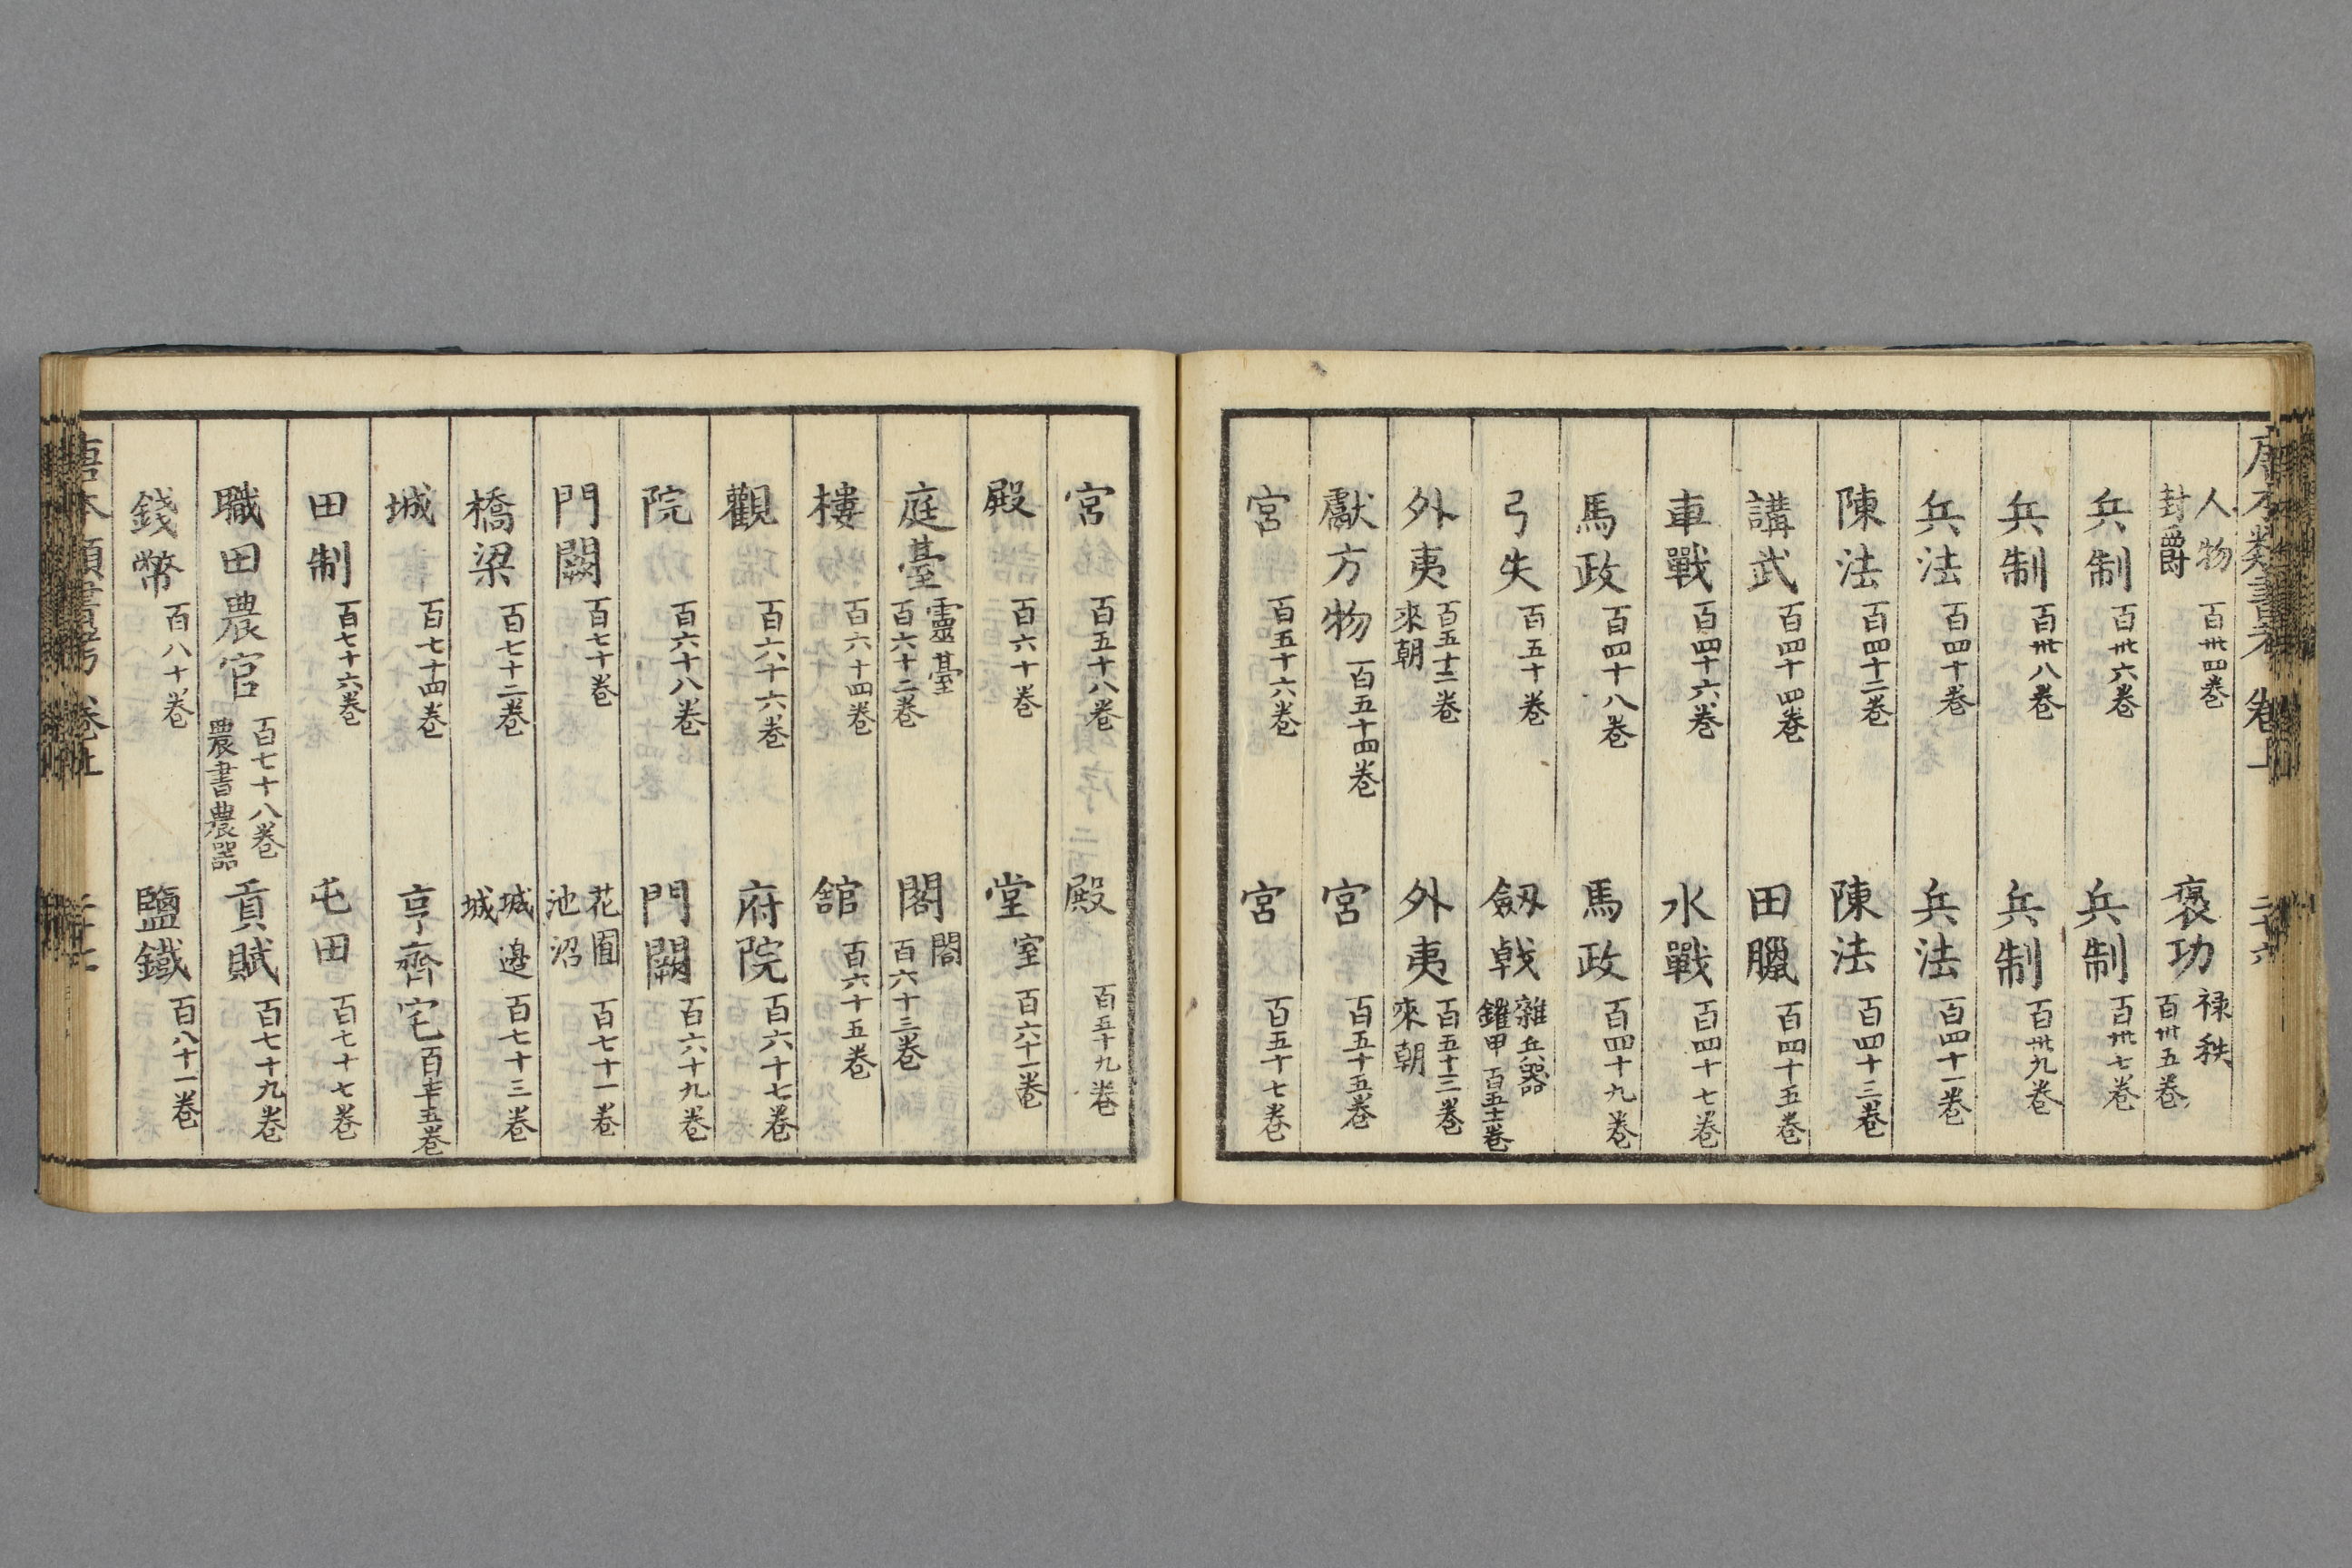 唐本類書考 卷上 二十六
人物 封爵 百卅四卷 褒功 禄秩 百卅五卷
兵制 百卅六卷 兵制 百卅七卷
兵制 百卅八卷 兵制 百卅九卷
兵法 百四十卷 兵法 百四十一卷
陳法 百四十二卷 陳法 百四十三卷
講武 百四十四卷 田臘 百四十五卷
車戰 百四十六卷 水戰 百四十七卷
馬政 百四十八卷 馬政 百四十九卷
弓矢 百五十卷 劔戟 雜兵器 鎧甲 百五十一卷
外夷 百五十二卷 來朝 外夷 百五十三卷 來朝
獻方物 百五十四卷 宮 百五十五卷
宮 百五十六卷 宮 百五十七卷
宮 百五十八卷 殿 百五十九卷
殿 百六十卷 堂 室 百六十一卷
庭臺 靈臺 百六十二卷 閣 閤 百六十三卷
樓 百六十四卷 舘 百六十五卷
觀 百六十六卷 府院 百六十七卷
院 百六十八卷 門闕 百六十九卷
門闕 百七十卷 花圃 池沼 百七十一卷
橋梁 百七十二卷 城 城邊 百七十三卷
城 百七十四卷 亭齊宅 百七十五卷
田制 百七十六卷 屯田 百七十七卷
職田農官 百七十八卷 農書農器 貢賦 百七十九卷
錢幣 百八十卷 鹽鐵 百八十一卷
唐本類書考 卷上 二十七